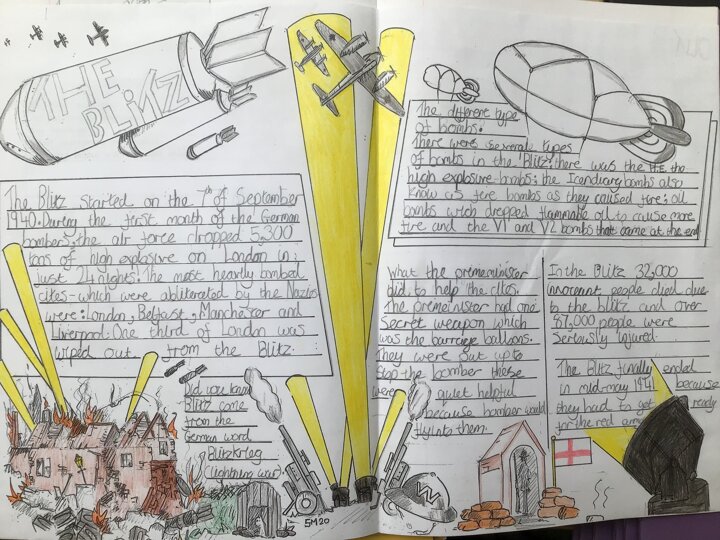 THE
BLITZ
The Blitz started on the 7th of September
1940. During the first month of the German
bombers, the air force dropped 5,300
tons of high explosive on London in
just 24 nights. The most heavily bombed
cites - which were abliterated by the Nazies
were: London, Belfast, Manchester and
Liverpool. One third of London was
wiped out from the Blitz.
Did you know
Blitz come
from the
German word
Blitzkrieg
(lightning war)
5M20
The different type
of bombs.
There were severale types
of bombs in the Blitz: there was the H.E. the
high explosive bombs; the Icendiary bombs also
know as fire bombs as they caused fire; oil
bombs wich dropped flammable oil to cause more
fire and the V1 and V2 bombs that came at the end
What the prememinister
did, to help the cites.
The premeinister had one
Secret weapon which
was the barraige balloons.
They were put up to
Stop the bomber these
were quiet helpful
because bomber would
fly into them.
W
In the Blitz 32,000
innocent people died due
to the blitz and over
87,000 people were
Seriously injured.
The Blitz finally ended
in mid-may 1941 because
they had to get ready
for the red army